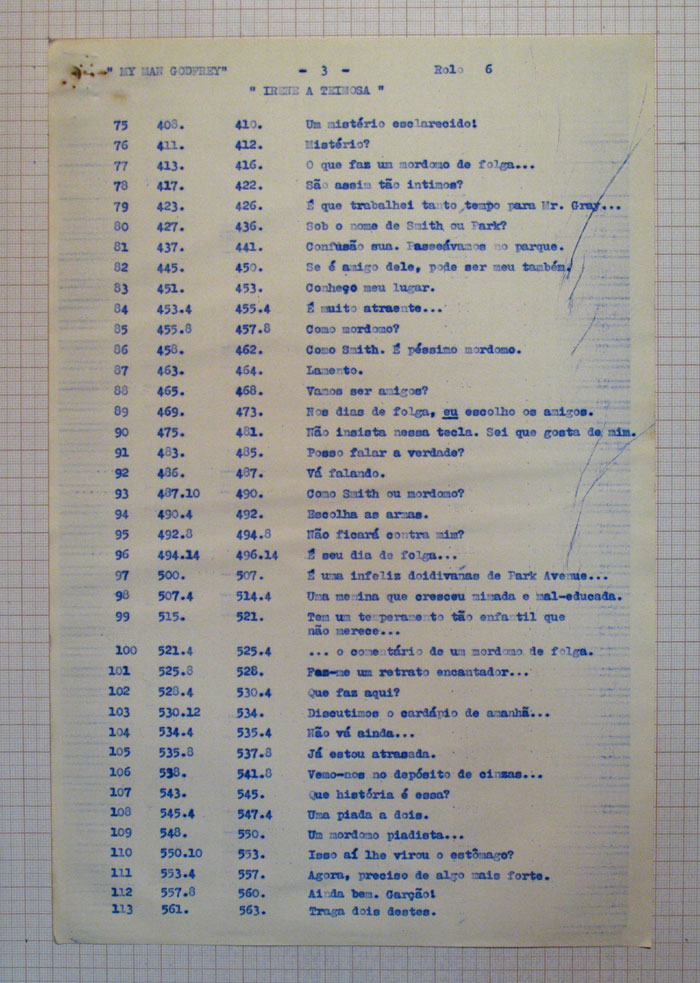 " MY MAN GODFREY" - 3 - Rolo 6
" IRENE A TEIMOSA "
75 408. 410. Um mistério esclarecido!
76 411. 412. Mistério?
77 413. 416. O que faz um mordomo de folga...
78 417. 422. São assim tão intimos?
79 423. 426. É que trabalhei tanto tempo para Mr. Gray...
80 427. 436. Sob o nome de Smith ou Park?
81 437. 441. Confusão sua. Passeávamos no parque.
82 445. 450. Se é amigo dele, pode ser meu também.
83 451. 453. Conheço meu lugar.
84 453.4 455.4 É muito atraente...
85 455.8 457.8 Como mordomo?
86 458. 462. Como Smith. É péssimo mordomo.
87 463. 464. Lamento.
88 465. 468. Vamos ser amigos?
89 469. 473. Nos dias de folga, eu escolho os amigos.
90 475. 481. Não insista nessa tecla. Sei que gosta de mim.
91 483. 485. Posso falar a verdade?
92 486. 487. Vá falando.
93 487.10 490. Como Smith ou mordomo?
94 490.4 492. Escolha as armas.
95 492.8 494.8 Não ficará contra mim?
96 494.14 496.14 É seu dia de folga...
97 500. 507. É uma infeliz doidivanas de Park Avenue...
98 507.4 514.4 Uma menina que cresceu mimada e mal-educada.
99 515. 521. Tem um temperamento tão enfantil que
não merece...
100 521.4 525.4 ... o comentário de um mordomo de folga.
101 525.8 528. Faz-me um retrato encantador...
102 528.4 530.4 Que faz aqui?
103 530.12 534. Discutimos o cardápio de amanhã...
104 534.4 535.4 Não vá ainda...
105 535.8 537.8 Já estou atrasada.
106 538. 541.8 Vemo-nos no depósito de cinzas...
107 543. 545. Que história é essa?
108 545.4 547.4 Uma piada a dois.
109 548. 550. Um mordomo piadista...
110 550.10 553. Isso aí lhe virou o estômago?
111 553.4 557. Agora, preciso de algo mais forte.
112 557.8 560. Ainda bem. Garção!
113 561. 563. Traga dois destes.